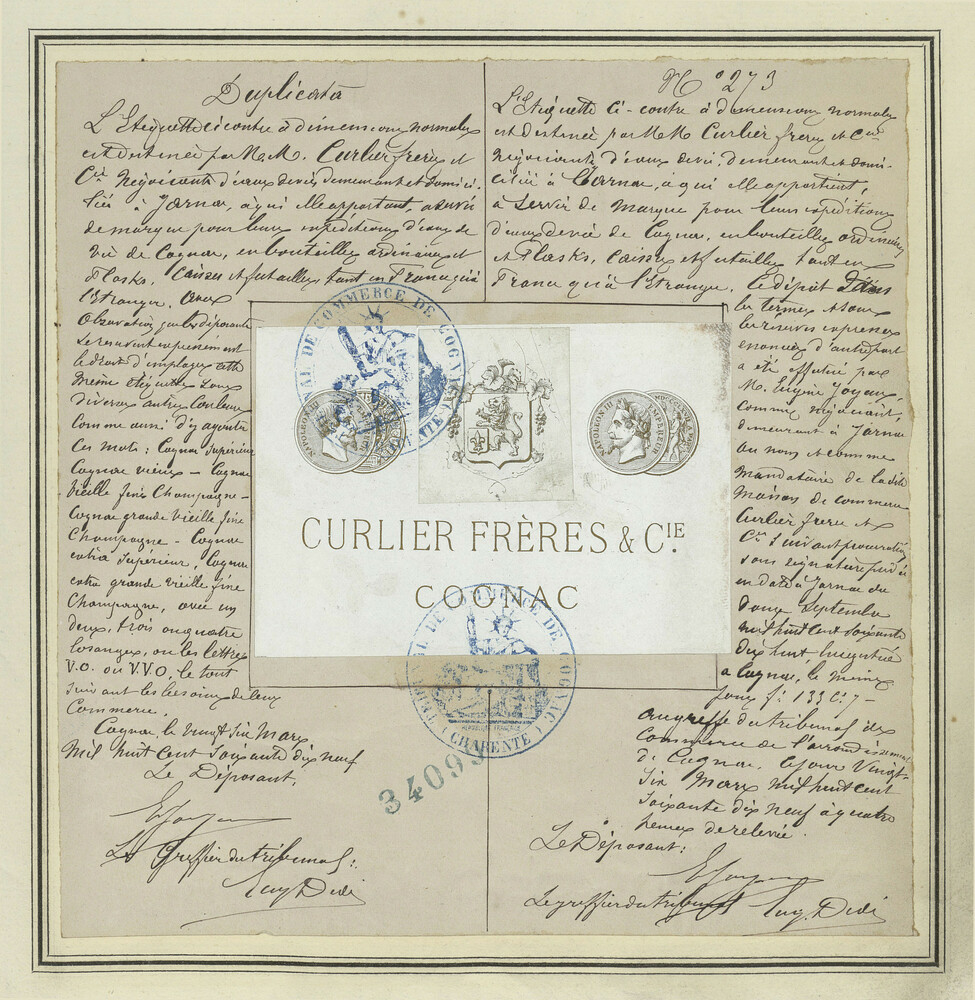 Duplicata
L'Etiquette ci contre à dimensions normales
est destinée par M.M. Curlier frères et
Cie Négociants d'eaux de vie demeurant et domici-
liés à Jarnac, à qui elle appartient, à servir
de marque pour leurs expéditions d'eaux de
vie de Cognac, en bouteilles ordinaires et
Flasks, Caisses et futailles tant en France qu'à
l'Etranger. Avec
Observation que les déposants
se réservent expressément
le droit d'employer cette
même étiquette sous
diverses autres Couleurs
comme aussi d'y ajouter
ces mots: Cognac Supérieur
Cognac vieux - Cognac
Vieille fine Champagne -
Cognac grande vieille fine
Champagne - Cognac
extra Supérieur, Cognac
extra grande vieille fine
Champagne, avec un
deux, trois ou quatre
losanges, ou les lettres
V.O. ou V.V.O. le tout
suivant les besoins de leur
Commerce.
Cognac le vingt six Mars
Mil huit Cent Soixante dix neuf
Le Déposant,
Le Greffier du tribunal:
Eug. Didi
No 273
L'Etiquette ci-contre à dimensions normales
est destinée par M.M. Curlier frères et Cie
Négociants d'eaux de vie, demeurant et domi-
ciliés à Jarnac, à qui elle appartient,
à servir de marque pour leurs expéditions
d'eaux de vie de Cognac, en bouteilles ordinaires
et Flasks, caisses et futailles tant en
France qu'à l'Etranger. Ce dépôt dans
les termes et sous
les réserves expresses
énoncées d'autre part
a été effectué par
M. Eugène Joyaux,
comme négociant
demeurant à Jarnac
au nom et comme
mandataire de la dite
Maison de commerce
Curlier frères et
Cie suivant procuration
sous signature privée
en date à Jarnac du
douze Septembre
mil huit cent soixante
dix huit, enregistrée
à Cognac, le
au greffe du tribunal de
Commerce de l'arrondissement
de Cognac, ce jour Vingt-
Six Mars mil huit cent
soixante dix neuf à quatre
heures de relevée.
Le Déposant:
Le greffier du tribunal
Eug. Didi
TRIBUNAL DE COMMERCE DE COGNAC
(CHARENTE)
NAPOLEON III
NAPOLEON III EMPEREUR
CURLIER FRÈRES & CIE.
COGNAC
TRIBUNAL DE COMMERCE DE COGNAC
REPUBLIQUE FRANÇAISE
(CHARENTE)
34095